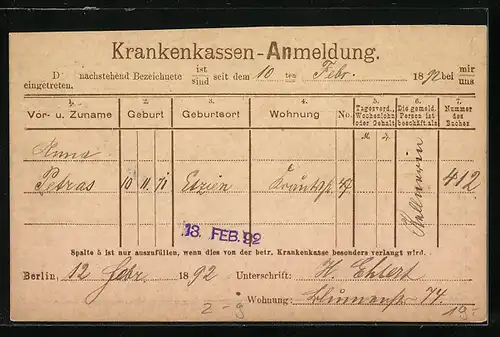 Krankenkassen-Anmeldung.
D nachstehend Bezeichnete ist/sind seit dem 10 ten Febr. 1892 bei mir/uns
eingetreten.
1. 2. 3. 4. 5. 6. 7.
Vor- u. Zuname Geburt Geburtsort Wohnung No. Tagesverd., Wochenlohn oder Gehalt Die gemeld. Person ist beschäft. als Nummer des Buches
Anna
Petras 10 11. 71 47 Kellnerin 412
13. FEB. 92
Spalte 5 ist nur auszufüllen, wenn dies von der betr. Krankenkasse besonders verlangt wird.
Berlin, 12 Febr. 1892 Unterschrift: H. Ehlert
Wohnung: Blumenstr 74.
2-9 19.-